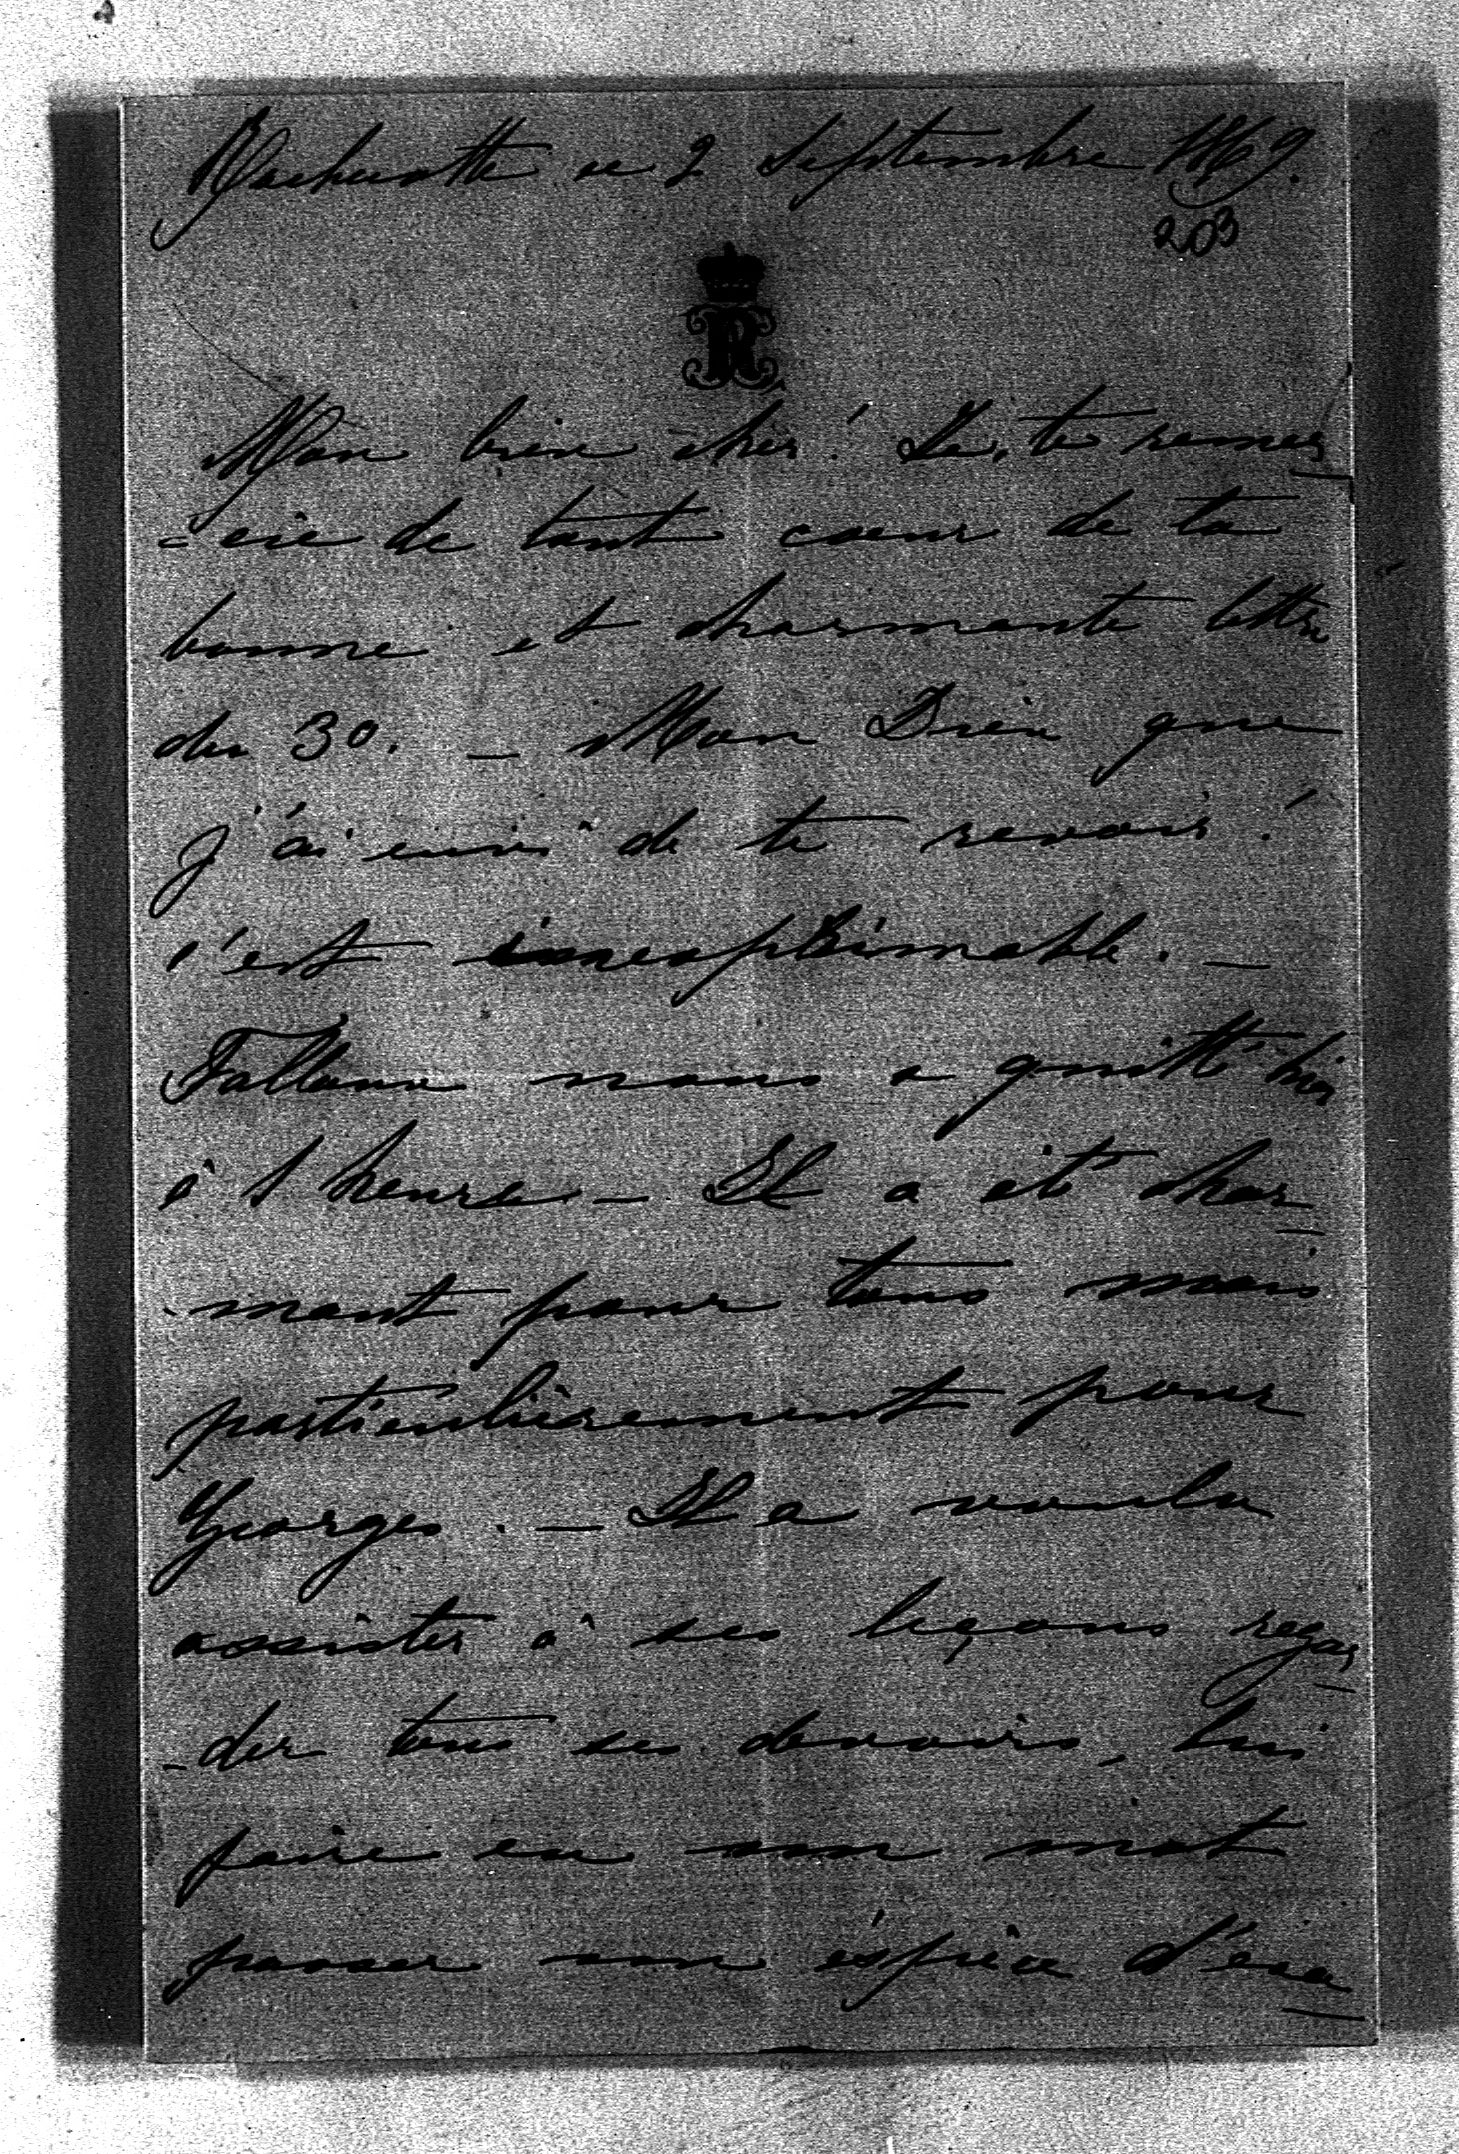 Rochecotte ce 2 Septembre 1869.
203
R
Mon bien cher! Je te remer
=cie de tout coeur de ta
bonne et charmante lettre
du 30. _ Mon Dieu que
j'ai envie de te revoir!
c'est inexprimable. _
Falloux nous a quitté hier
à 1 heure _ Il a été char_
-mant pour tous mais
particulièrement pour
Georges. _ Il a voulu
assister à ses leçons regar_
-der tous ses devoirs, lui
faire en un mot
passer une éspèce d'exa_